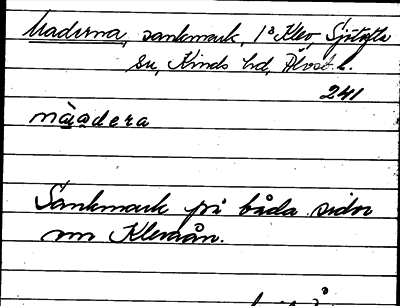 Maderna, sankmark, 1° Klev, Sjötofta
sn, Kinds hd, Älvsb. l.
241
màadera
Sankmark på båda sidor
om Klevaån.